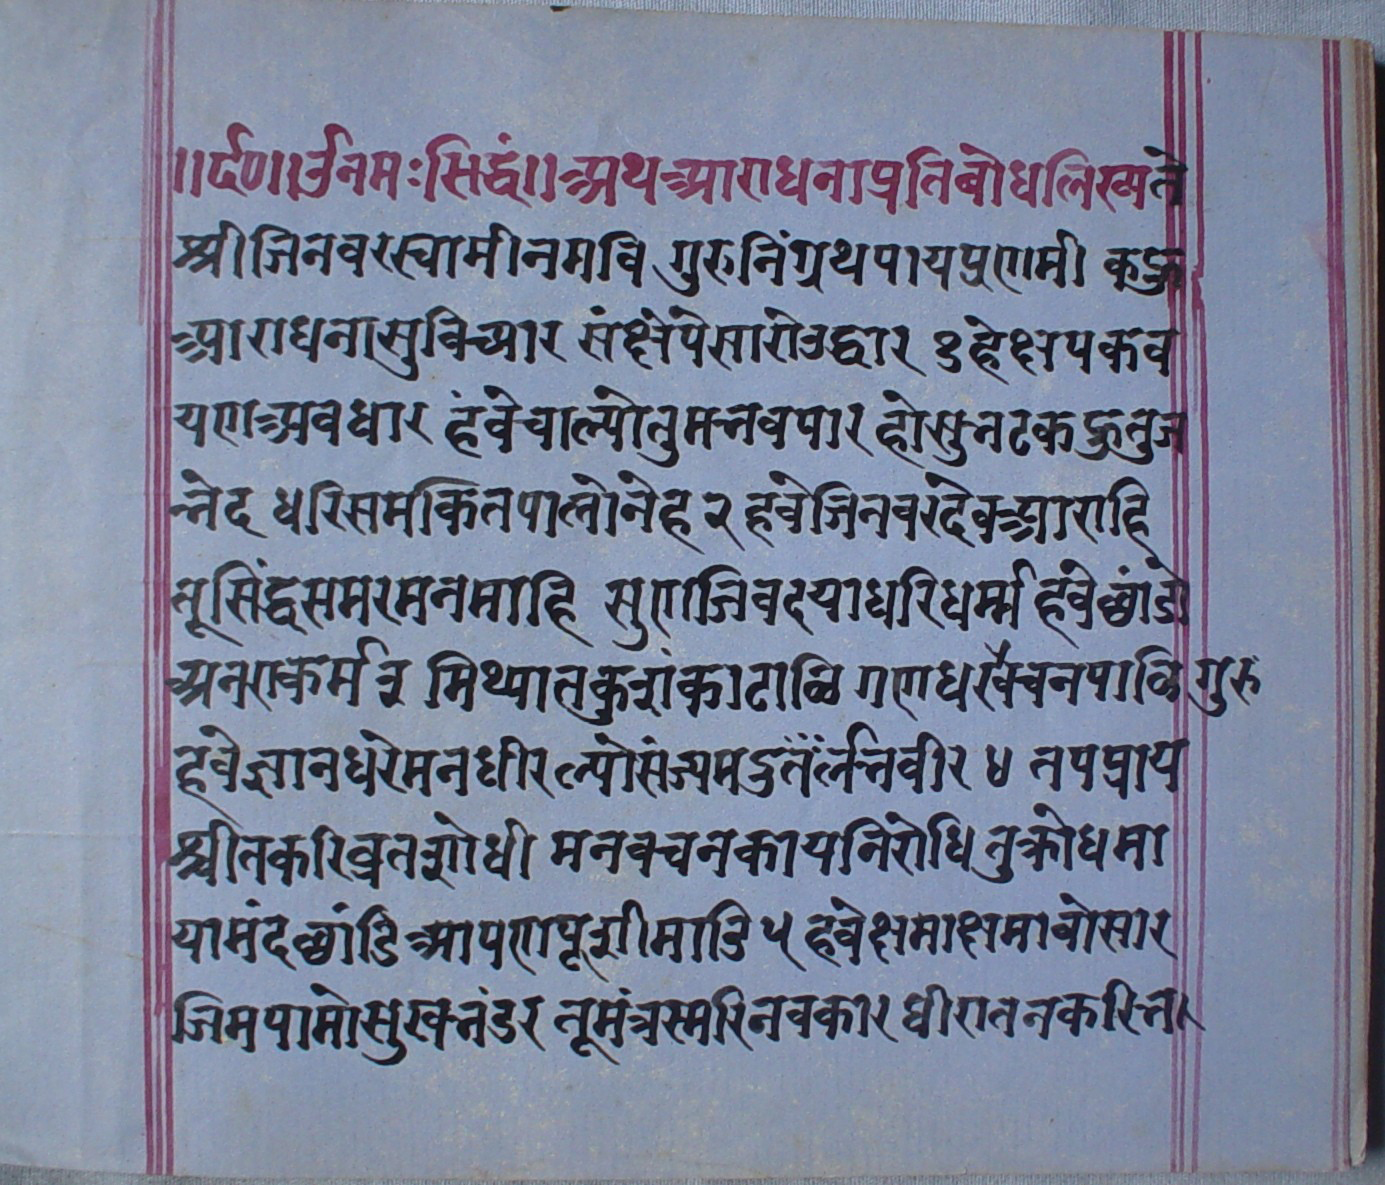 ॥ र्द० ॥ र्उनमःसिद्धं ॥ अथआराधनाप्रतिबोधलिख्यते
श्रीजिनवरस्वामीनमवि गुरुनिंग्रथपायप्रणमी कहु
आराधनासुविचार संक्षेपेसारोउद्धार १ हेक्षपकव
यणअवधार हंवेचाल्योतुमभवपार होसुभटकहुतुज
भेद धरिसमकितपालोनेह २ हवेजिनवरदेवआराहि
तूसिंद्धसमरमनमाहि सुणजिवदयाधरिधर्म्म हंवेछांडो
अनुाकर्म ३ मिथ्यातकुशंकाटालि गणधरवचनपालि गुरु
हवेज्ञानधरेमनधीर ल्योसंज्यम वीर ४ तपप्राय
श्चीतकरिव्रतशोधी मनवचनकायनिरोधि तुक्रोधमा
यामंदछांडि आपणपूशीमाडि ५ हवेक्षमाक्षमावोसार
जिमपामोसुखभंडार तूमंत्रस्मरिनवकार धीरातनकरिभ